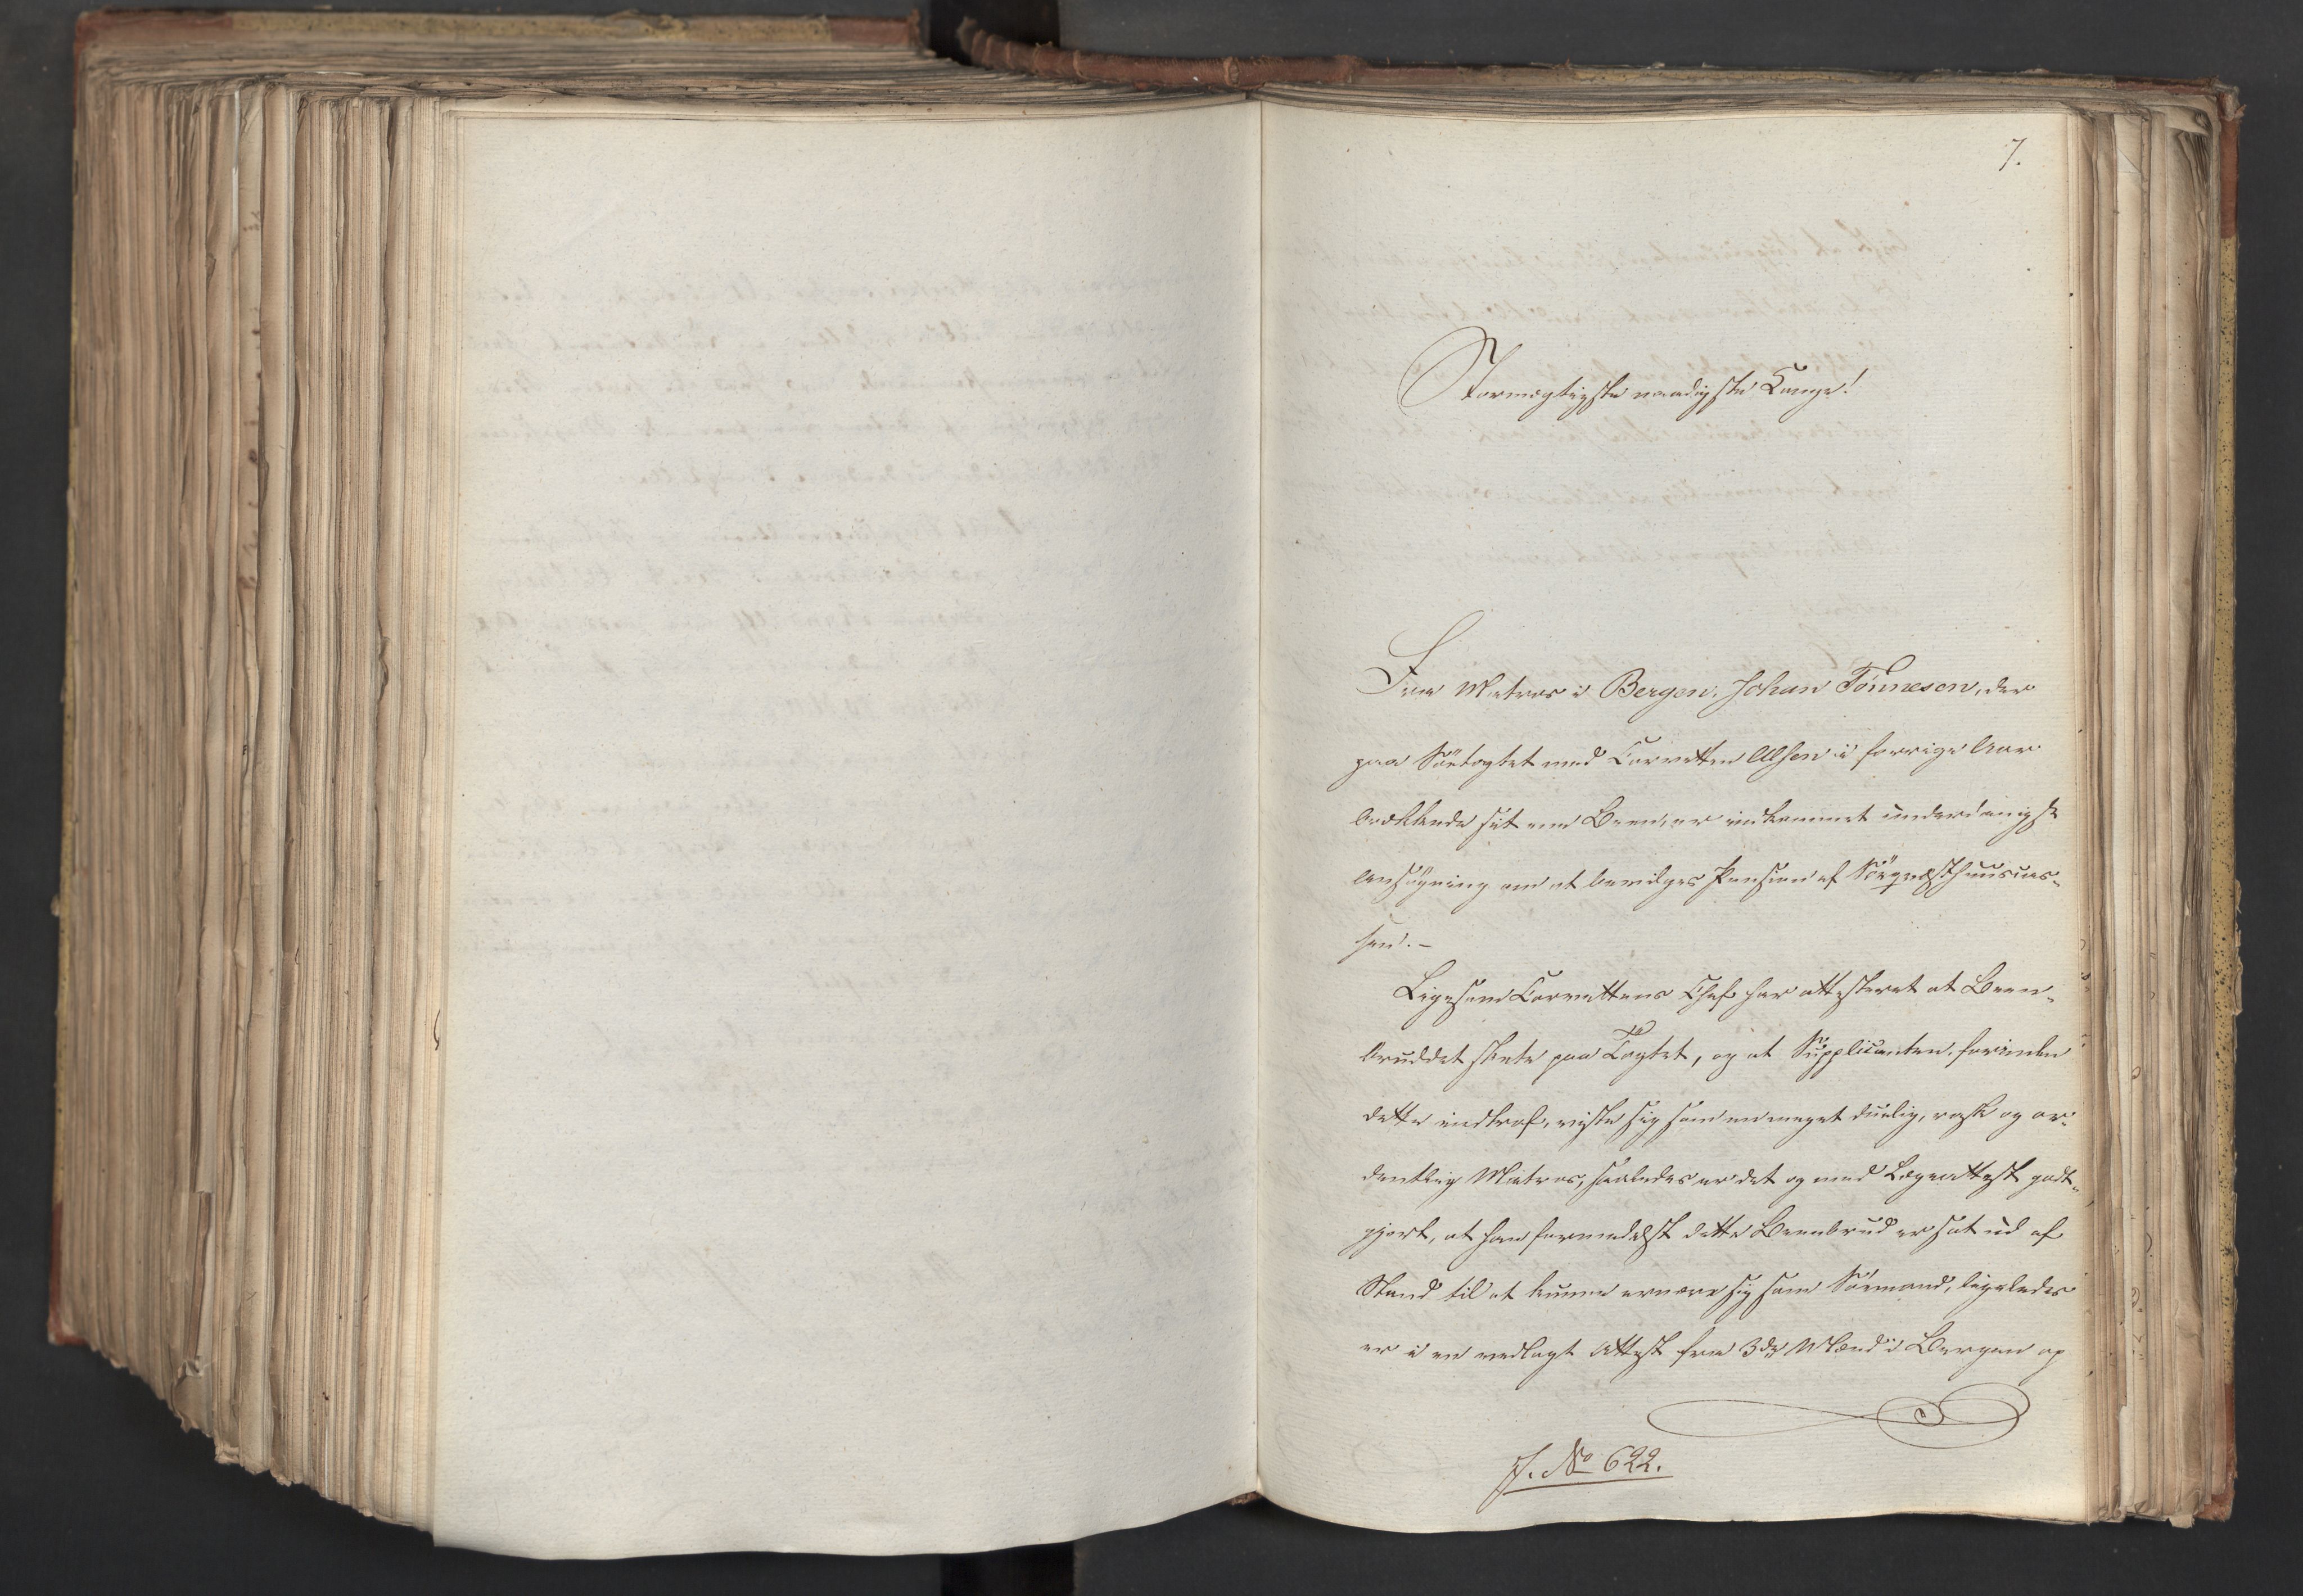 7.
Stormægtigste naadigste Konge!
Fra Matros i Bergen, Johan Tönnesen, der
paa Söetogtet med Corvetten Alsen i forrige Aar
brækkede sit ene Been, er indkommet underdanigst
Ansögning om at bevilges Pension af Söeqvæsthuuscas-
sen. -
Ligesom Corvettens Chef har attesteret at Been-
bruddet skete paa Togtet, og at Supplicanten, forinden
dette indtraf, viste sig som en meget duelig, rask og or-
dentlig Matros, saaledes er det og med Lægeattest godt-
gjort, at han formedelst dette Beenbrud er sat ud af
Stand til at kunne ernære sig som Söemand, ligeledes
er i en vedlagt Attest fra 3de Mænd i Bergen op
J. No 622.